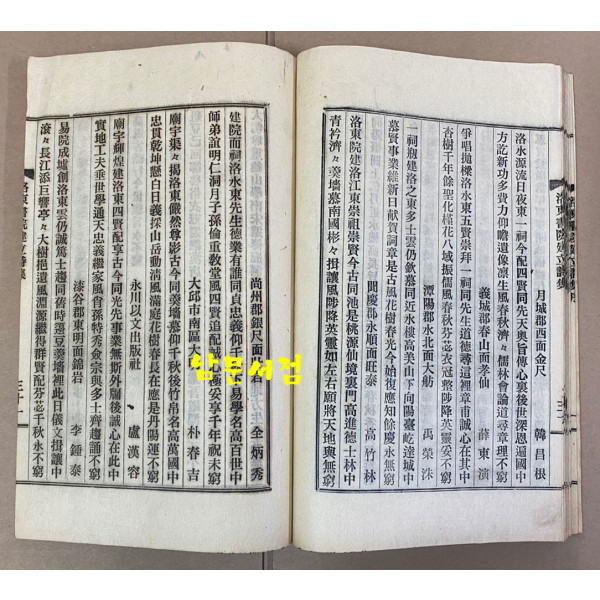 月城郡西面金尺 韓昌根
洛水源流日夜東一祠今配四賢同先天奧旨傳心裏後世深恩遍國中
方訖新功多費力仰瞻遺像凛生風春秋濟々儒林會論道尋章理不窮
義城郡春山面孝仙 薛東演
爭唱拋樑洛水東五賢崇拜一祠同先生道德尋這裡章甫誠心在其中
杏樹千年餘聖化槿花八域振儒風春秋芬苾衣冠整陟降英靈妥不窮
潭陽郡水北面大舫 禹榮洙
一祠翘建洛之東多士雲仍歆慕同近水樓高美山下向陽臺屹達城中
慕賢事業維新日献賀詞章是古風花樹春光今始復應知餘慶永無窮
聞慶郡永順面旺泰 高竹林
洛東院建洛江東崇祖崇賢今古同池是桃源仙境裏門高進德士林中
青衿濟々羹墻慕南國彬々揖讓風陟降英靈如左右願將天地與無窮
洛東書院建立詩集
尚州郡銀尺面 岩 全炳秀
建院而祠洛水東先生德業有誰同貞忠義仰千 易學名高百世中
師弟誼明仁洞月子孫倫重敎堂風四賢追配誠心極妥享千年祝未窮
大邱市南區大 朴春吉
廟宇巢々揭洛東儼然尊影古今同羹墻慕仰千秋後竹帛名高萬國中
忠貫乾坤懸白日義採山岳動清風滿庭花樹春長在應是丹陽運不窮
永川以文出版社 盧漢容
廟宇輝煌建洛東四賢配享古今同光先事業無斯外屬後誠心在此中
實地工夫垂世學通天忠義繼家風肖孫特秀僉宗與多士齊趨誦不窮
漆谷郡東明面錦岩 李鍾泰
易院成墟創洛東雲仍誠篤士趨同舊時還豆羹墻裡此日儀文揖讓中
滾々長江添巨響亭々大樹挹遺風淵源繼得群賢配芬苾千秋永不窮
洛東書院建立詩集
남문서점